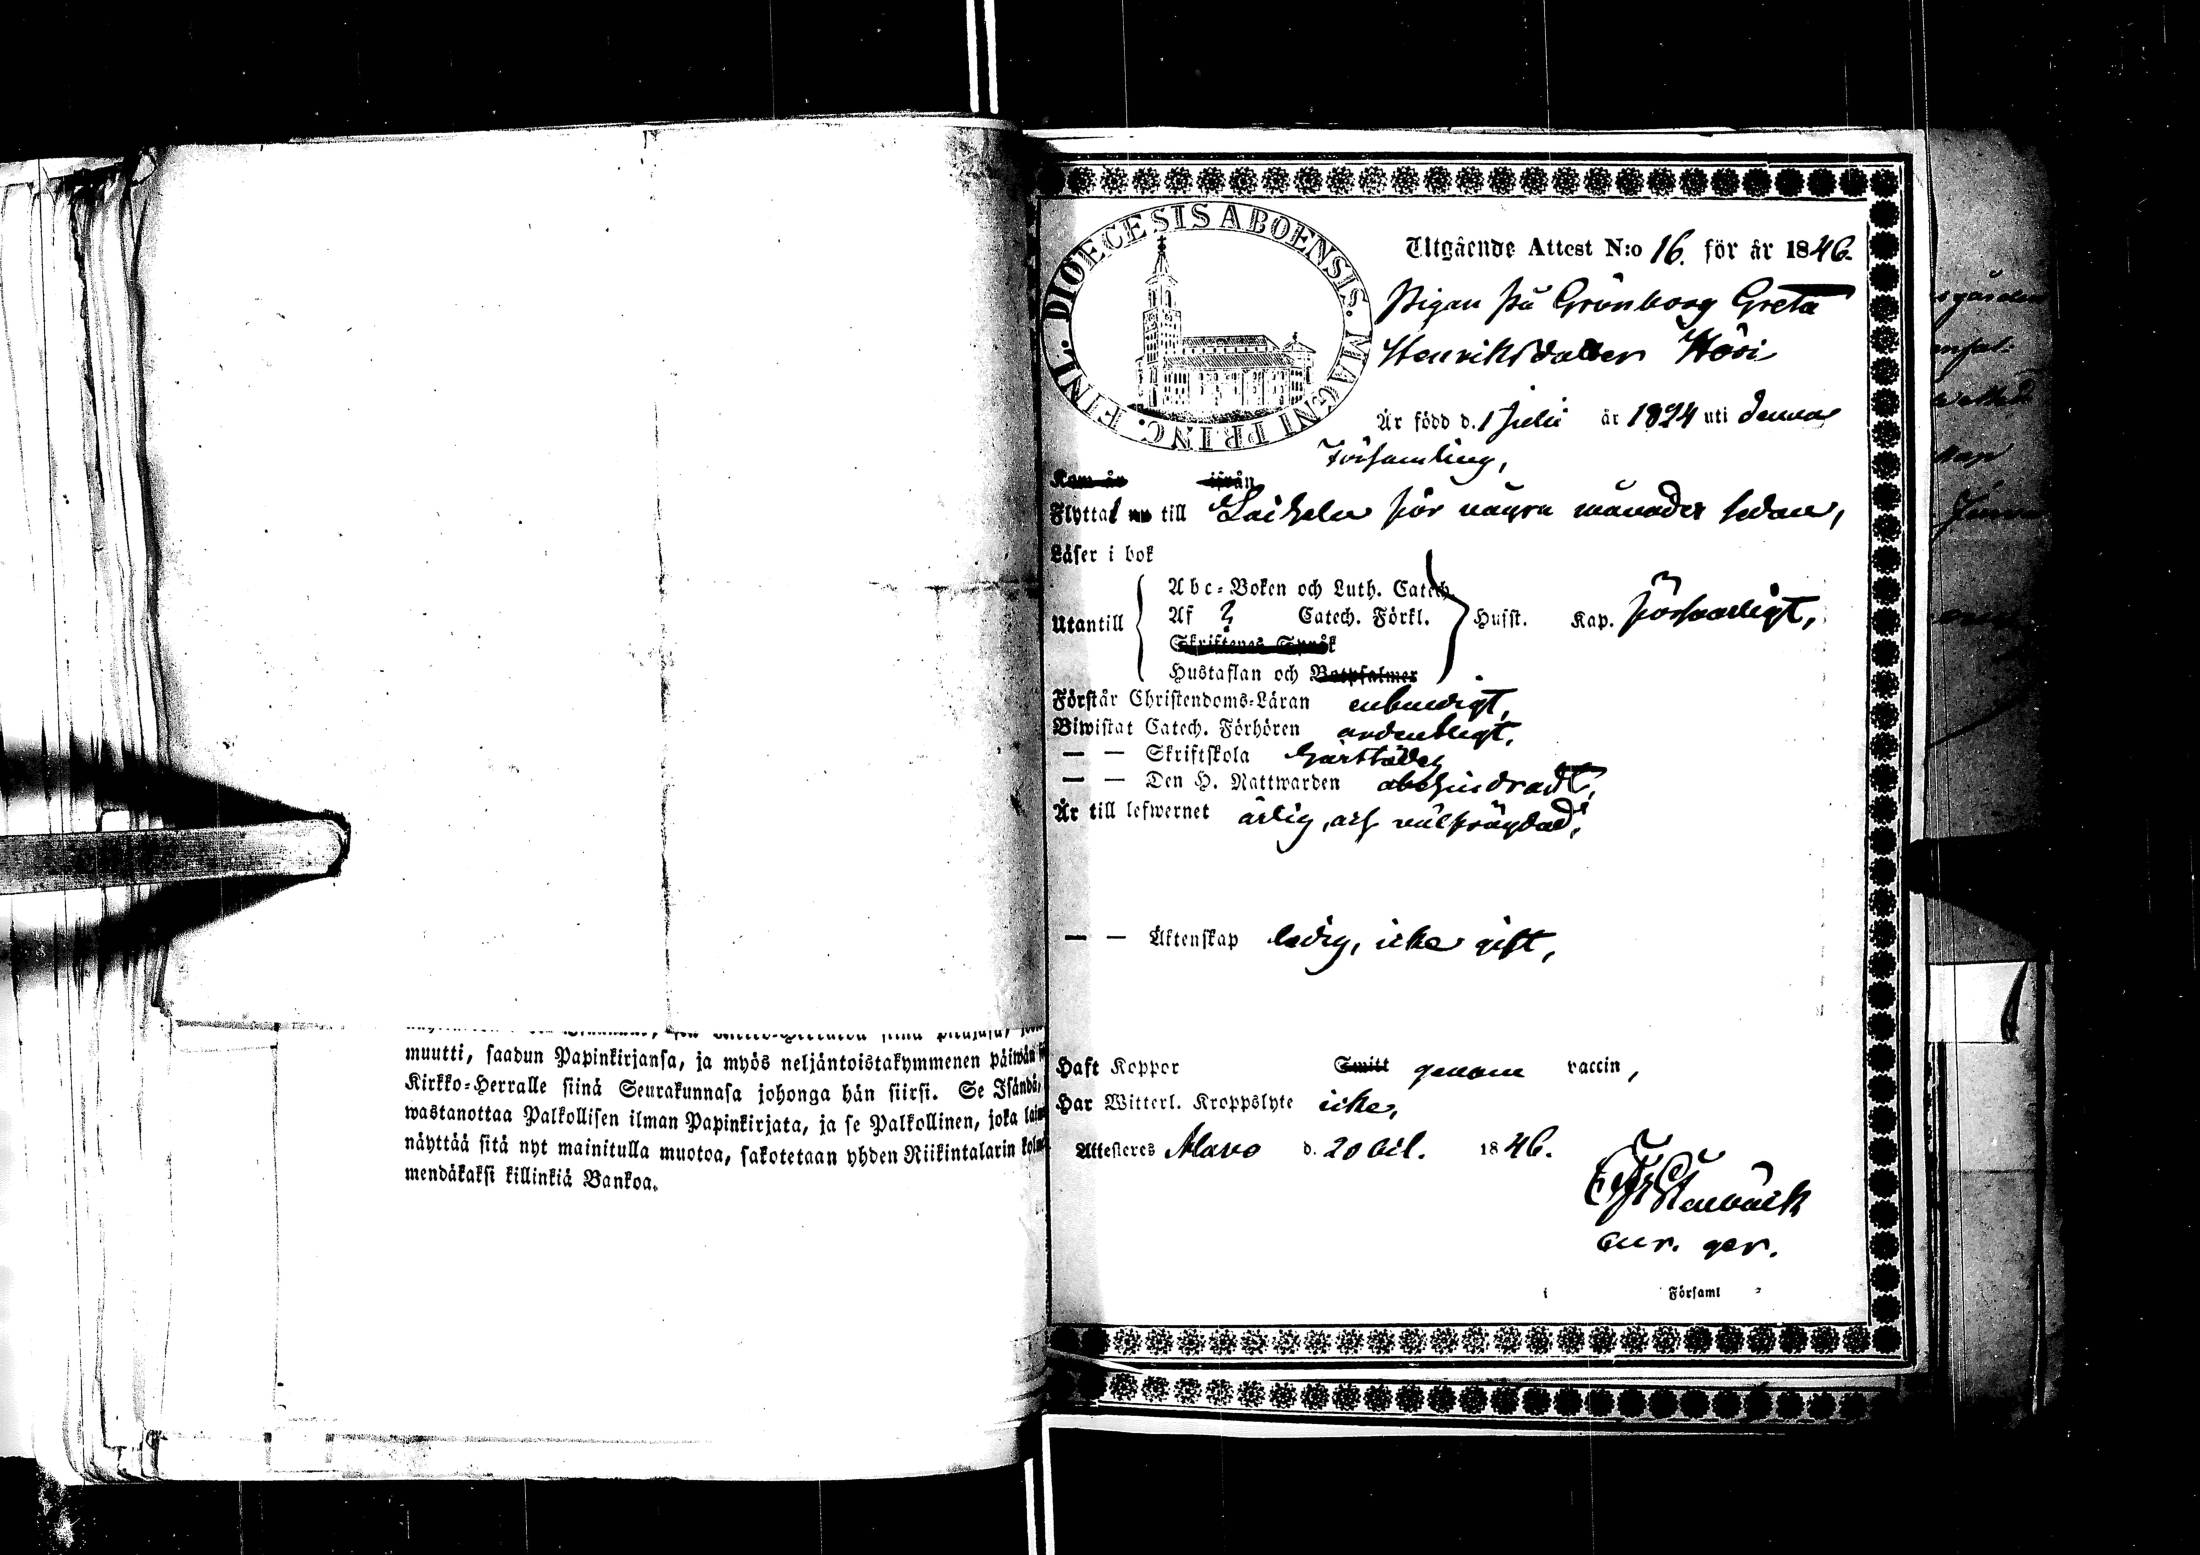 muutti, saadun Papinkirjansa, ja myös neljäntoistakymmenen päiwän
Kirkko-Herralle siinä Seurakunnasa johonga hän siirsi. Se Isändä,
wastanottaa Palkollisen ilman Papinkirjata, ja se Palkollinen, joka
näyttää sitä nyt mainitulla muotoa, sakotetaan yhden Riikintalarin
mendäkaksi killinkiä Bankoa.
FINL. DIOECESIS ABOENSIS. MAGNI PRINC.
Utgående Attest N:o 16. för år 1846.
Pigan på Grönborg Greta
Henriksdotter
Är född d. 1 Julii år 1824 uti denna
Församling,
Kom år ifrån
Flyttat nu till Laihela för några månader sedan,
Läser i bok
Utantill
Abc-Boken och Luth. Catech.
Af Catech. Förkl.
Skriftenes Språk
Hustaflan och Botpsalmer
Husst. Kap. försvarligt,
Förstår Christendoms-Läran enfaldigt,
Biwistat Catech. Förhören ordentligt,
— — Skriftskola härstädes
— — Den H. Nattwarden obehindradt,
Är till lefwernet ärlig, och välfrägdad,
— — Äktenskap ledig, icke gift,
Haft Koppor Smitt genom vaccin,
Har Witterl. Kroppslyte icke,
Attesteres Alavo d. 20 1846.
i Församl